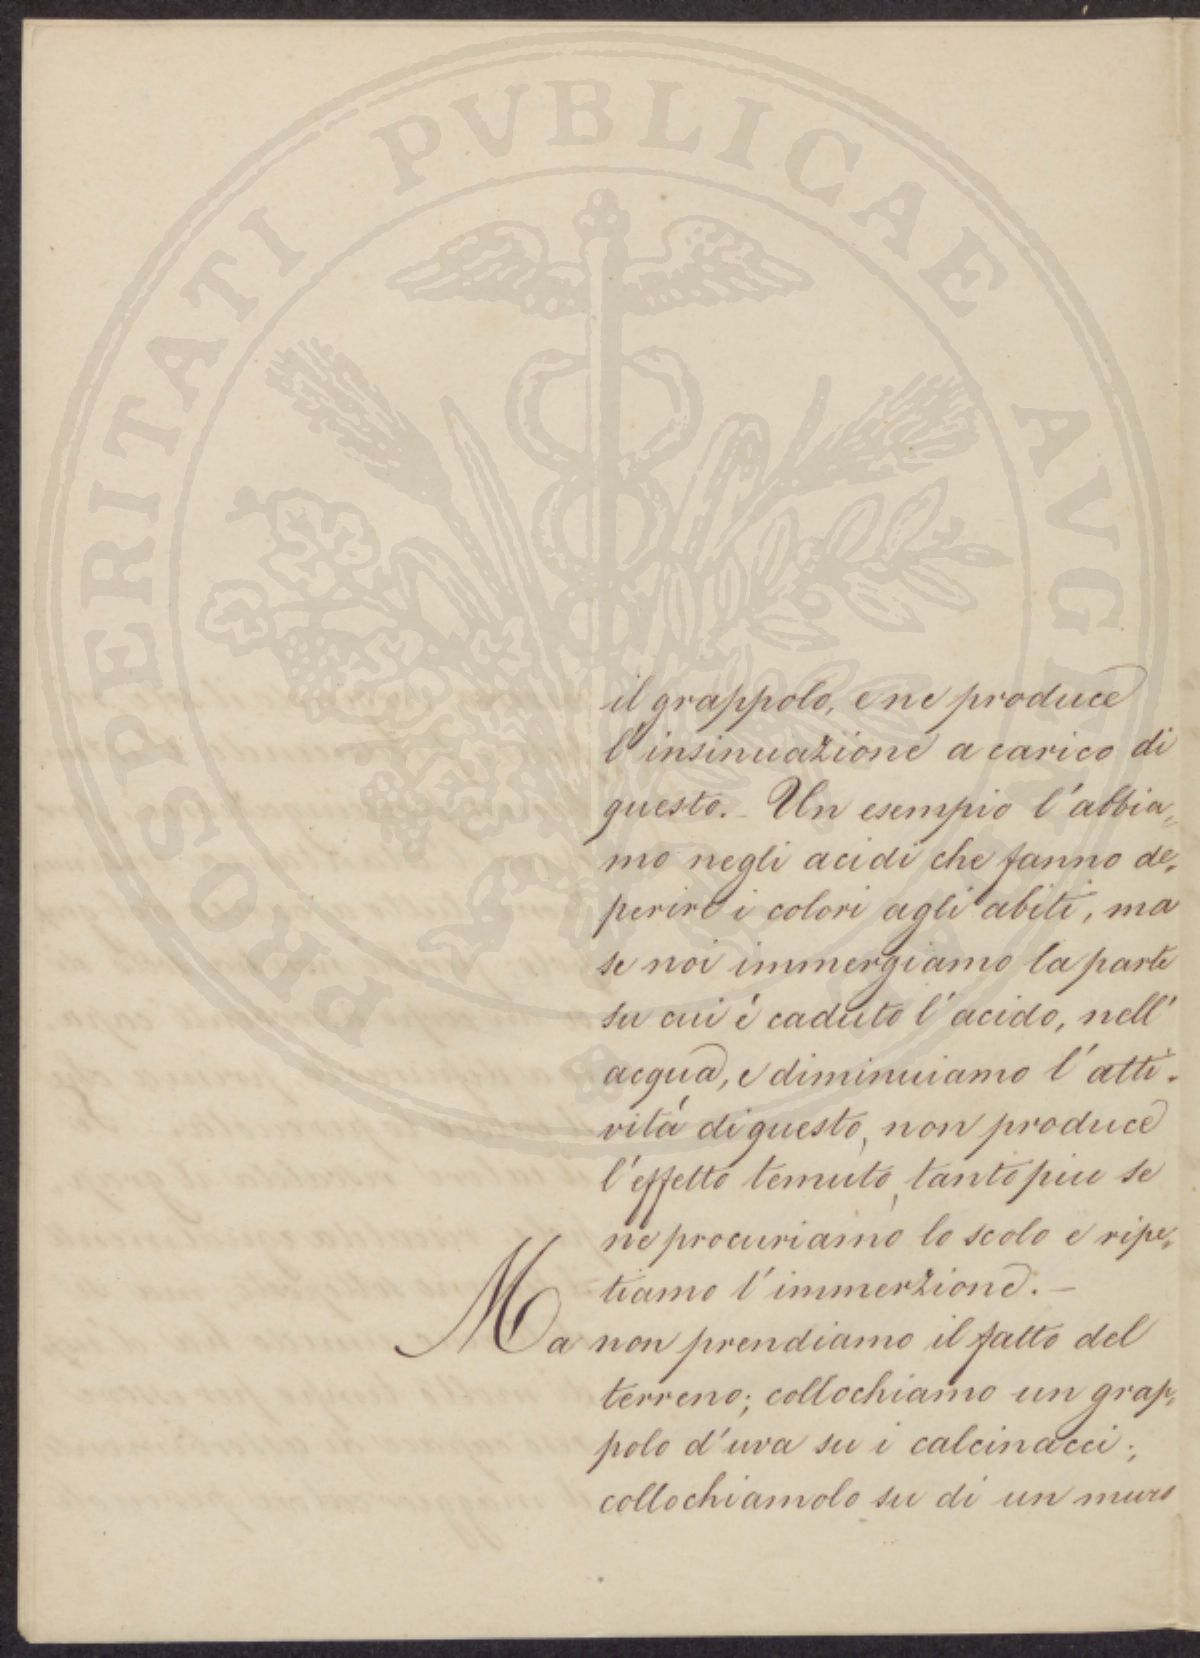 PROSPERITATI PVBLICAE AVGENDAE
il grappolo, e ne produce
l'insinuazione a carico di
questo. - Un esempio l'abbia„
mo negli acidi che fanno de„
perire i colori agli abiti, ma
se noi immergiamo la parte
su cui é caduto l'acido, nell'
acqua, e diminuiamo l'atti-
vitá di questo, non produce
l'effetto temuto, tanto piu se
ne procuriamo lo scolo e ripe„
tiamo l'immerzione. -
Ma non prendiamo il fatto del
terreno; collochiamo un grap„
polo d'uva su i calcinacci;
collochiamolo su di un muro